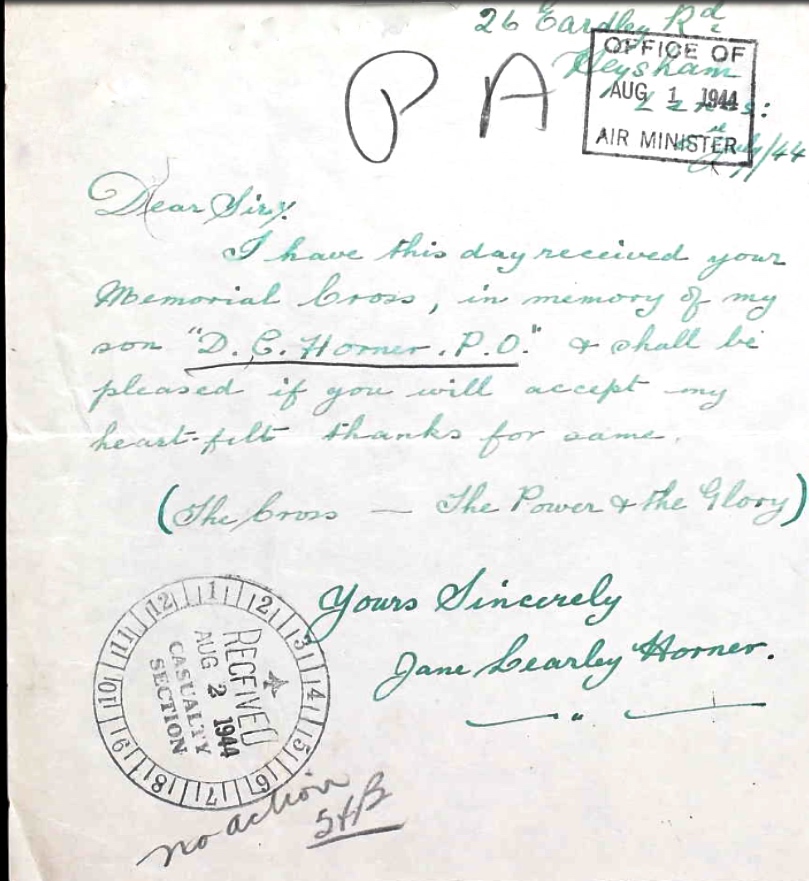 26 Eardley Rd
Heysham
Lancs:
July/44
P A
OFFICE OF
AUG 1 1944
AIR MINISTER
Dear Sir,
I have this day received your
Memorial Cross, in memory of my
son "D. C. Horner. P.O." & shall be
pleased if you will accept my
heart-felt thanks for same.
(The Cross — The Power & the Glory)
Yours Sincerely
Jane Learley Horner.
12 1 2 3 4 5 6 7 8 9 10 11
RECEIVED
AUG 2 1944
CASUALTY
SECTION
no action